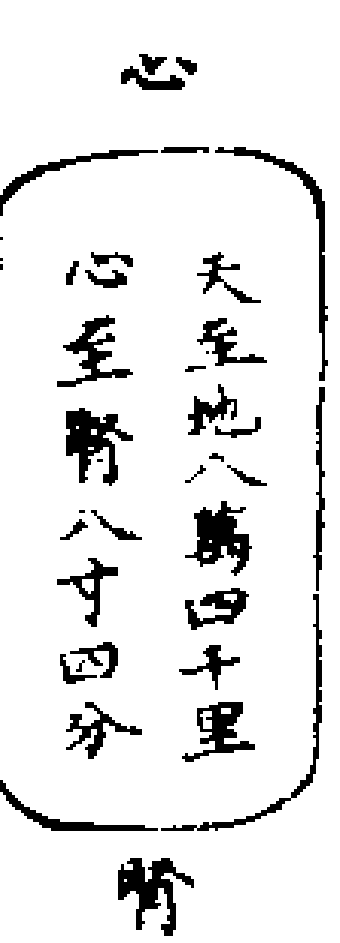 心
天至地八萬四千里
心至腎八寸四分
腎